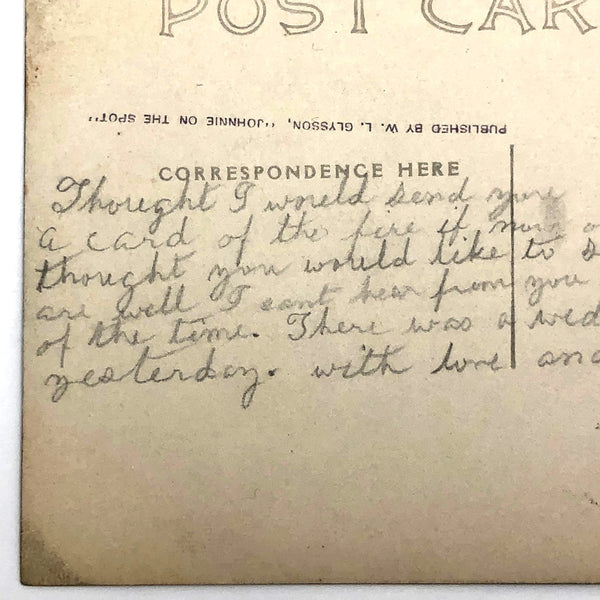 POST CAR
PUBLISHED BY W. L. GLYSSON, "JOHNNIE ON THE SPOT"
CORRESPONDENCE HERE
Thought I would send you
a card of the fire if
thought you would like to s
are well I cant hear from you
of the time. There was a wed
yesterday. with love and